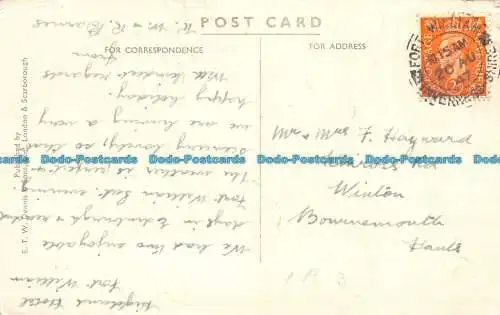 POST CARD
FOR CORRESPONDENCE
FOR ADDRESS
Highland Hotel
Fort William
We had two enjoyable
days in Edinburgh & reached
Fort William Sat. evening
The weather is perfect &
Scenery lovely, so that
we are having a very
happy holiday.
With kindest regards
from
K. M & R. Barnes
Mr & Mrs F. Hayward
Rd
Winton
Bournemouth
Hants
Published by
E. T. W. Dennis & Sons Ltd., London & Scarborough
FORT WILLIAM
10 15 AM
20 AU
47
INVERNESS-SHIRE
POSTAGE
Dodo-Postcards Dodo-Postcards Dodo-Postcards Dodo-Postcards Dodo-Postcards
Dodo-Postcards Dodo-Postcards Dodo-Postcards Dodo-Postcards Dodo-Postcards